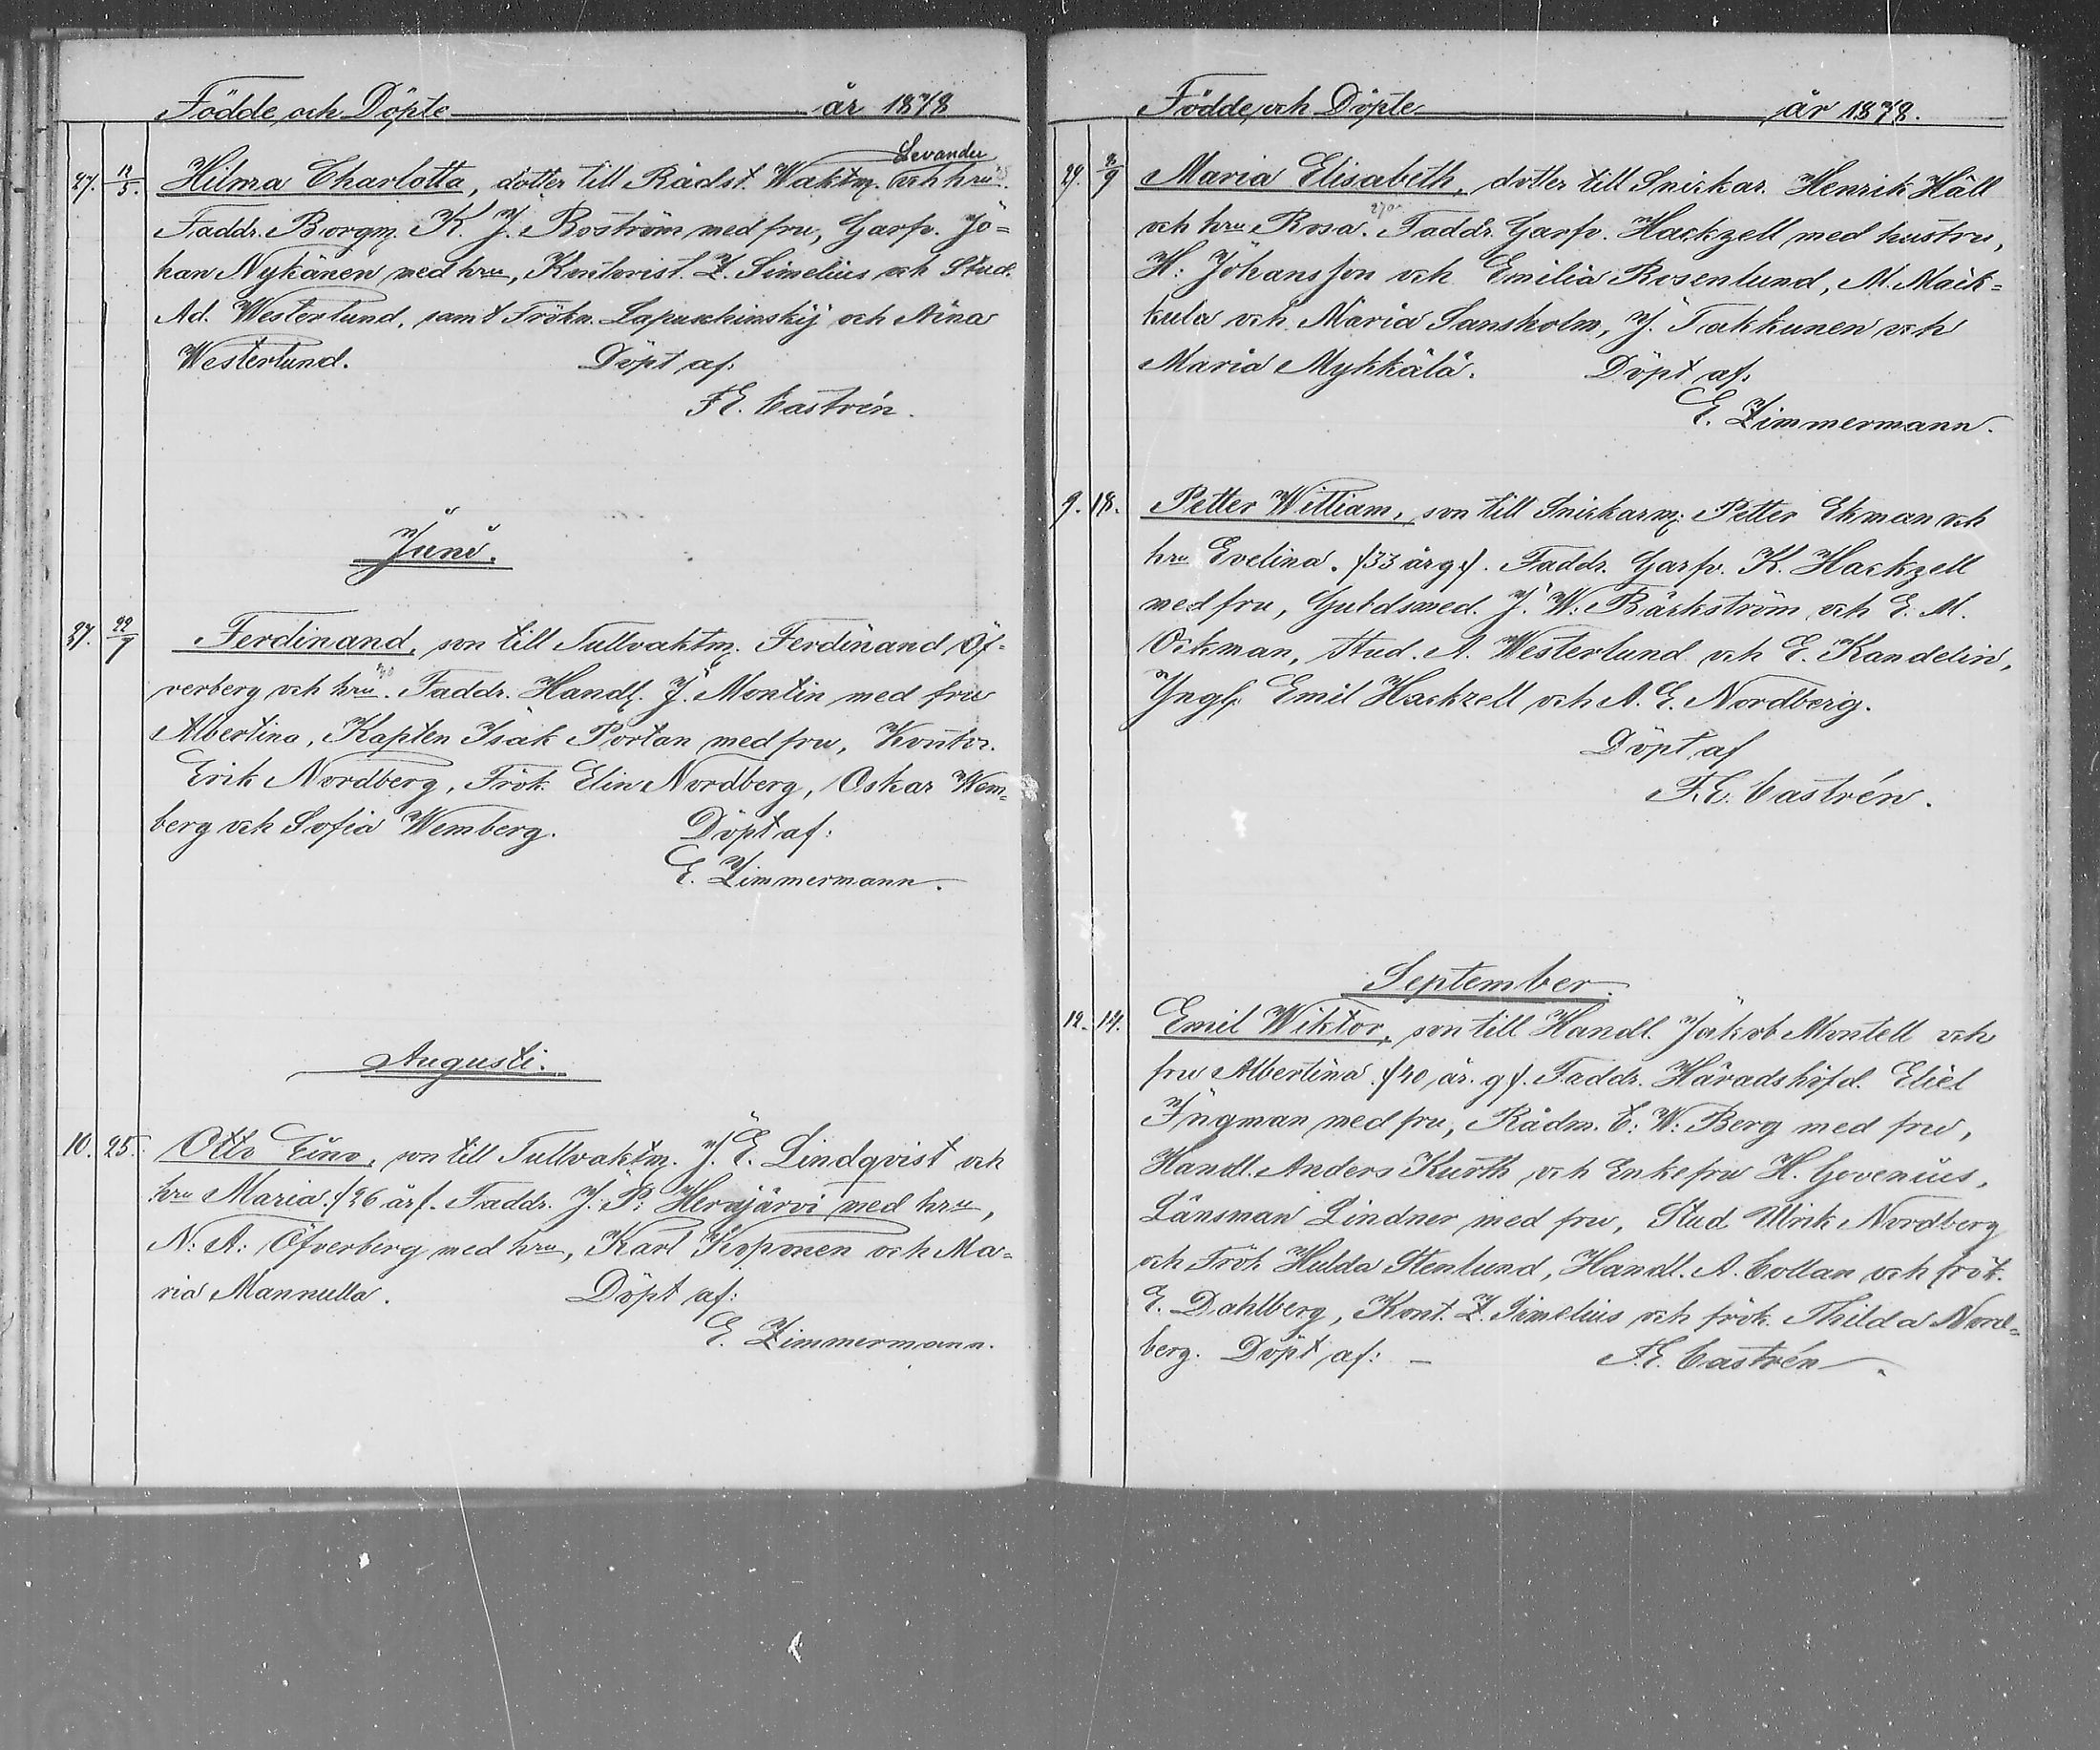 Födde och Döpte år 1878
Levander
27. 12/5. Hilma Charlotta, dotter till Rådst. Waktm. och hru.
Faddr. Borgm. K. J. Boström med fru, Garfv. Jo=
han Nykänen med hru, Kontorist. Z. Simelius och Stud.
Ad. Westerlund, samt Frökn. Lapuschinskij och Aina
Westerlund. Döpt af:
F.E. Castrén.
Juni.
27. 22/7 Ferdinand, son till Tullvaktm. Ferdinand Öf-
verberg och hru. Faddr. Handl. J. Montin med fru
Albertina, Kapten Isak Portan med fru, Kontor.
Erik Nordberg, Frök. Elin Nordberg, Oskar Wem=
berg och Sofia Wemberg. Döpt af:
E. Zimmermann.
Augusti.
10. 25. Otto Eino, son till Tullvaktm. J. E. Lindqvist och
hru Maria. (26 år). Faddr. J. P: Herajärvi med hru,
N: A: Öfverberg med hru, Karl Koponen och Ma=
ria Mannulla. Döpt af:
E. Zimmermann.
Födde och Döpte år 1878.
29. /9 Maria Elisabeth, dotter till Snickar. Henrik Häll
och hru Rosa. Faddr. Garfv. Hackzell med hustru,
H: Johansson och Emilia Rosenlund, M. Mäck=
kula och Maria Sansholm, J. Takkunen och
Maria Mykkälä. Döpt af:
E. Zimmermann.
9. 18. Petter William, son till Snickarm. Petter Ekman och
hru Evelina. (33 år g.). Faddr. Garfv. K. Hackzell
med fru, Guldsmed. J. W. Bäckström och E. M.
Ockman, Stud. A. Westerlund och E. Kandelin,
Yngl. Emil Hackzell och A. E. Nordberg.
Döpt af
F.E. Castrén.
September.
12. 14. Emil Wiktor, son till Handl. Jakob Montell och
fru Albertina (40 år. g). Faddr. Häradshöfd. Eliel
Ingman med fru, Rådm. C: W: Berg med fru,
Handl. Anders Kurth och Enkefru H. Govenius,
Länsman Lindner med fru, Stud Ulrik Nordberg
och Frök Hulda Stenlund, Handl. A. Collan och frök.
E. Dahlberg, Kont. Z. Simelius och frök. Thilda Nord=
berg. Döpt af: — F.E. Castrén.